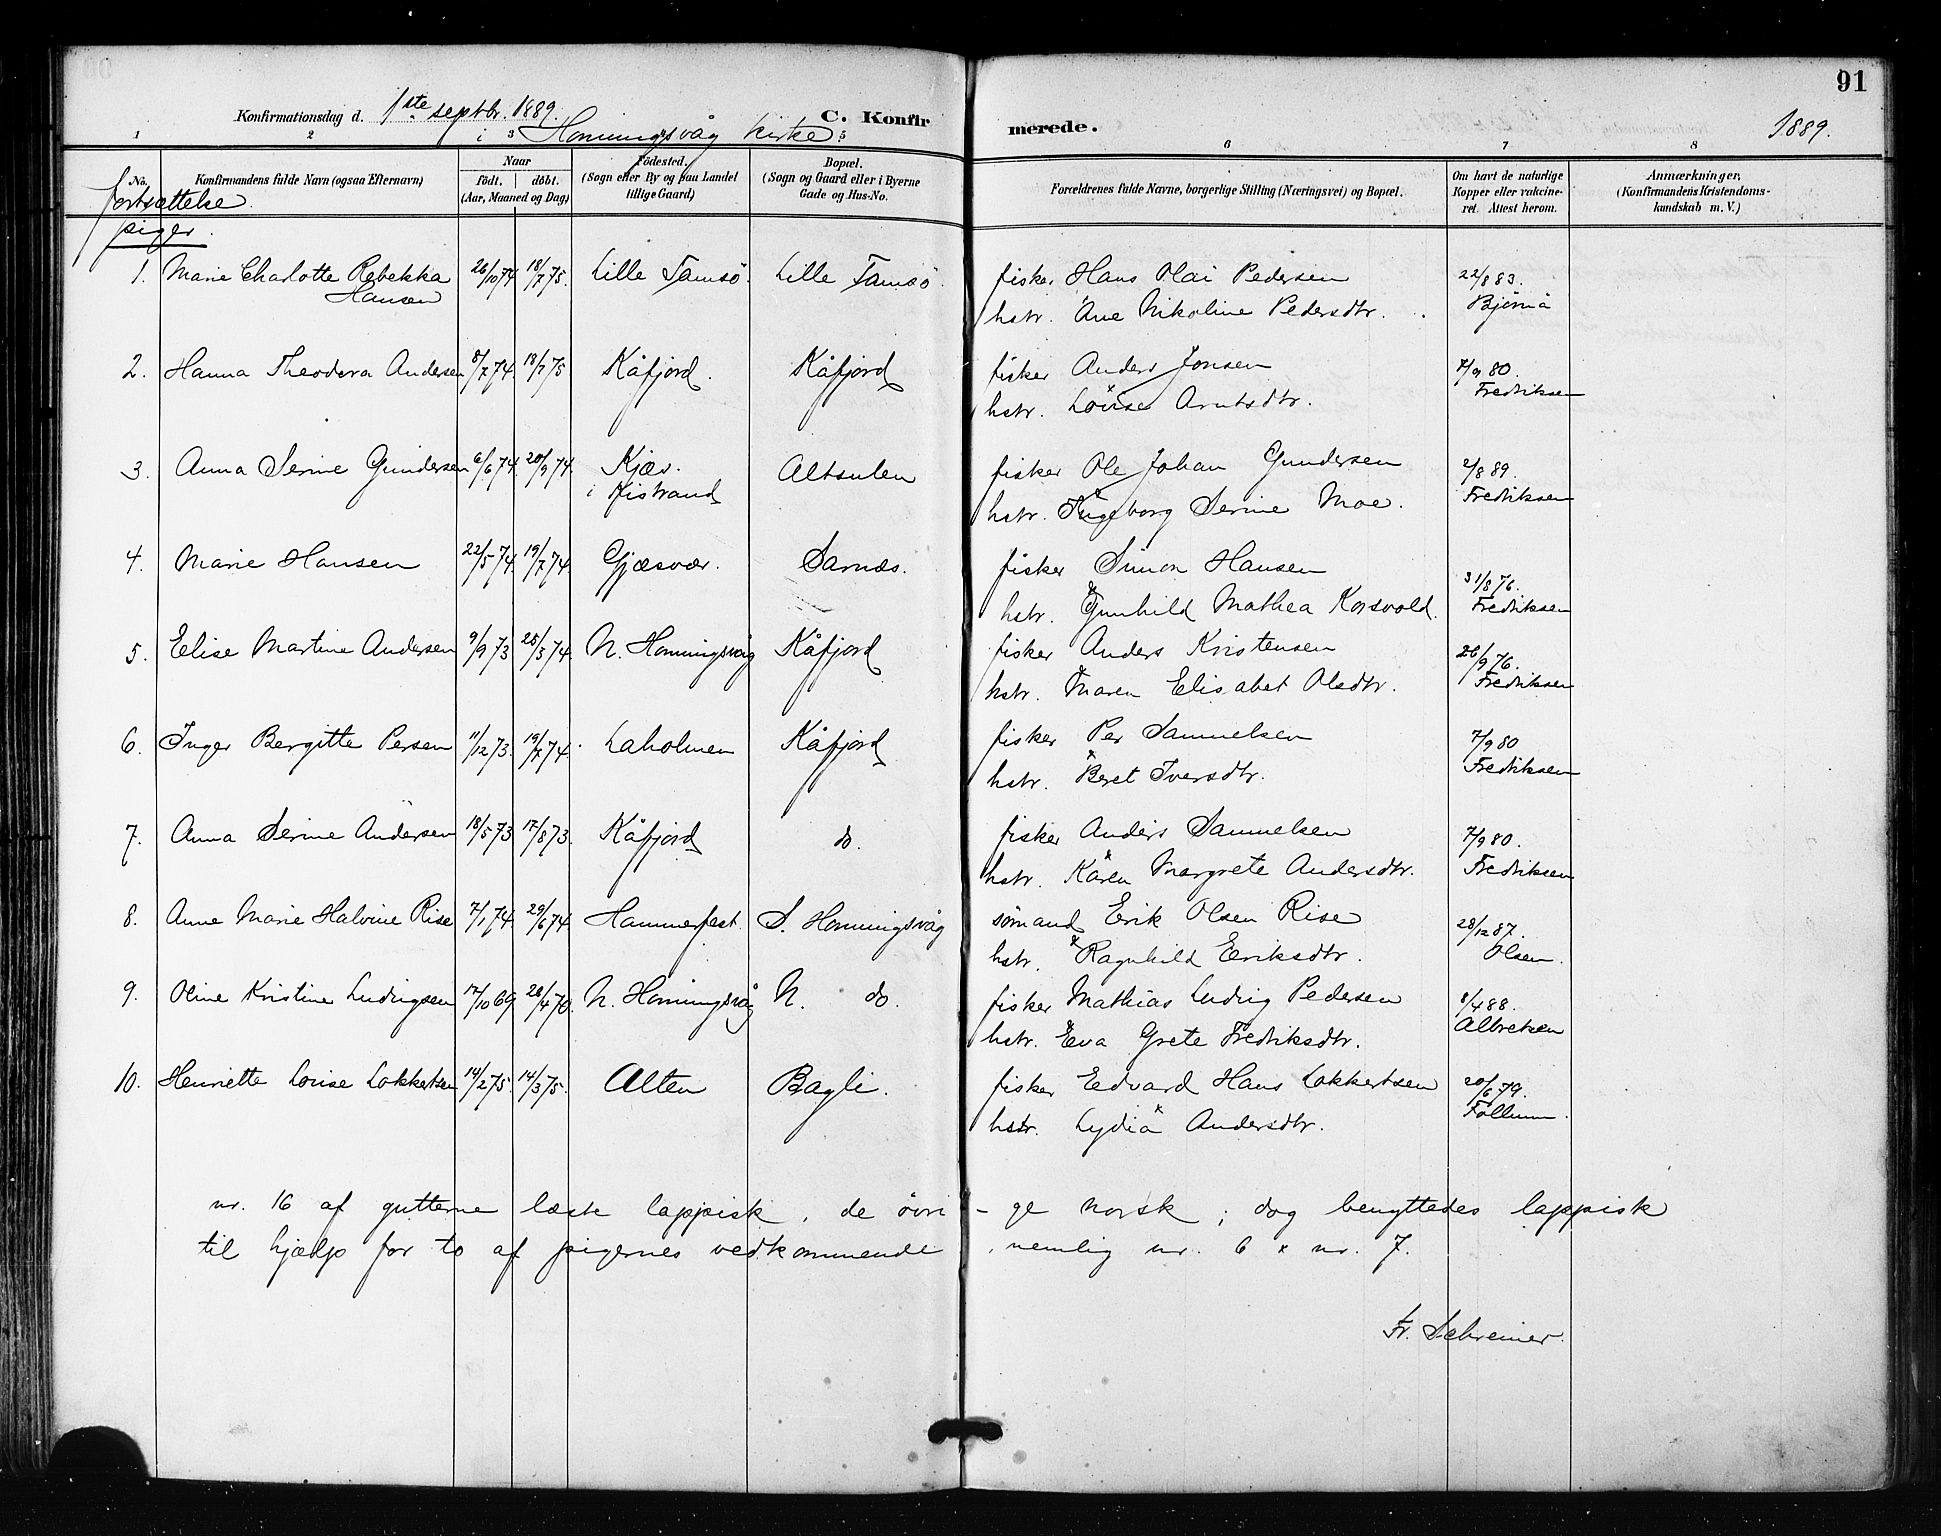 91
Konfirmationsdag d. 1ste septbr. 1889. C. Konfirmerede. 1889.
i Honningsvåg kirke.
1 2 3 5 6 7 8
No. Konfirmandens fulde Navn (ogsaa Efternavn) Naar födt. döbt. (Aar, Maaned og Dag) Födested. (Sogn eller By og paa Landet tillige Gaard) Bopæl. (Sogn og Gaard eller i Byerne Gade og Hus-No. Forældrenes fulde Navne, borgerlige Stilling (Næringsvei) og Bopæl. Om havt de naturlige Kopper eller vakcineret. Attest herom. Anmærkninger, (Konfirmandens Kristendomskundskab m. V.)
fortsættelse
piger.
1. Marie Charlotte Rebekka 26/10 74 18/7 75. Lille Tamsö. Lille Tamsö. fisker Hans Olai Pedersen 22/8 83.
Hansen hstr. Ane Nikoline Pedersdtr. Bjernå
2. Hanna Theodora Andersen 8/7 74. 18/7 75 Kåfjord. Kåfjord fisker Anders Jonsen 7/9 80.
hstr. Lovise Arntsdtr. Fredriksen
3. Anna Serine Gundersen 6/6 74. 20/9 74. Kjæs. Altsulen fisker Ole Johan Gundersen 2/8 89.
i Kistrand hstr. Ingeborg Serine Moe. Fredriksen
4. Marie Hansen 22/5 74. 19/7 74. Gjæsvær. Sarnæs. fisker Simon Hansen 31/8 76.
hstr. Gunhild Mathea Korsvold. Fredriksen
5. Elise Martine Andersen 9/9 73 25/5 74. N. Honningsvåg Kåfjord fisker Anders Kristensen 26/9 76.
hstr. Maren Elisabet Olsdtr. Fredriksen
6. Inger Bergitte Persen 11/12 73. 19/7 74. Laholmen Kåfjord fisker Per Samuelsen 7/9 80
hstr. Beret Iversdtr. Fredriksen
7. Anna Serine Andersen 18/5 73 17/8 73. Kåfjord do. fisker Anders Samuelsen 7/9 80.
hstr. Karen Margrete Andersdtr. Fredriksen
8. Anne Marie Halvine Rise 7/1 74. 29/6 74. Hammerfest. S. Honningsvåg sömand Erik Olsen Rise 28/12 87.
hstr. Ragnhild Eriksdtr. Olsen.
9. Oline Kristine Ludvigsen 17/10 69. 28/4 70. N. Honningsvåg N. do. fisker Mathias Ludvig Pedersen 8/4 88.
hstr. Eva Grete Fredriksdtr. Albretsen
10. Henriette Lovise Lokkertsen 14/2 75. 14/3 75. Alten Bagli. fisker Edvard Hans Lokkertsen 20/6 79.
hstr. Lydia Andersdtr. Follum.
nr. 16 af gutterne læste lappisk, de övri-ge norsk; dog benyttedes lappisk
til hjælp for to af pigernes vedkommende, nemlig nr. 6 & nr. 7.
Fr. Schreiner.